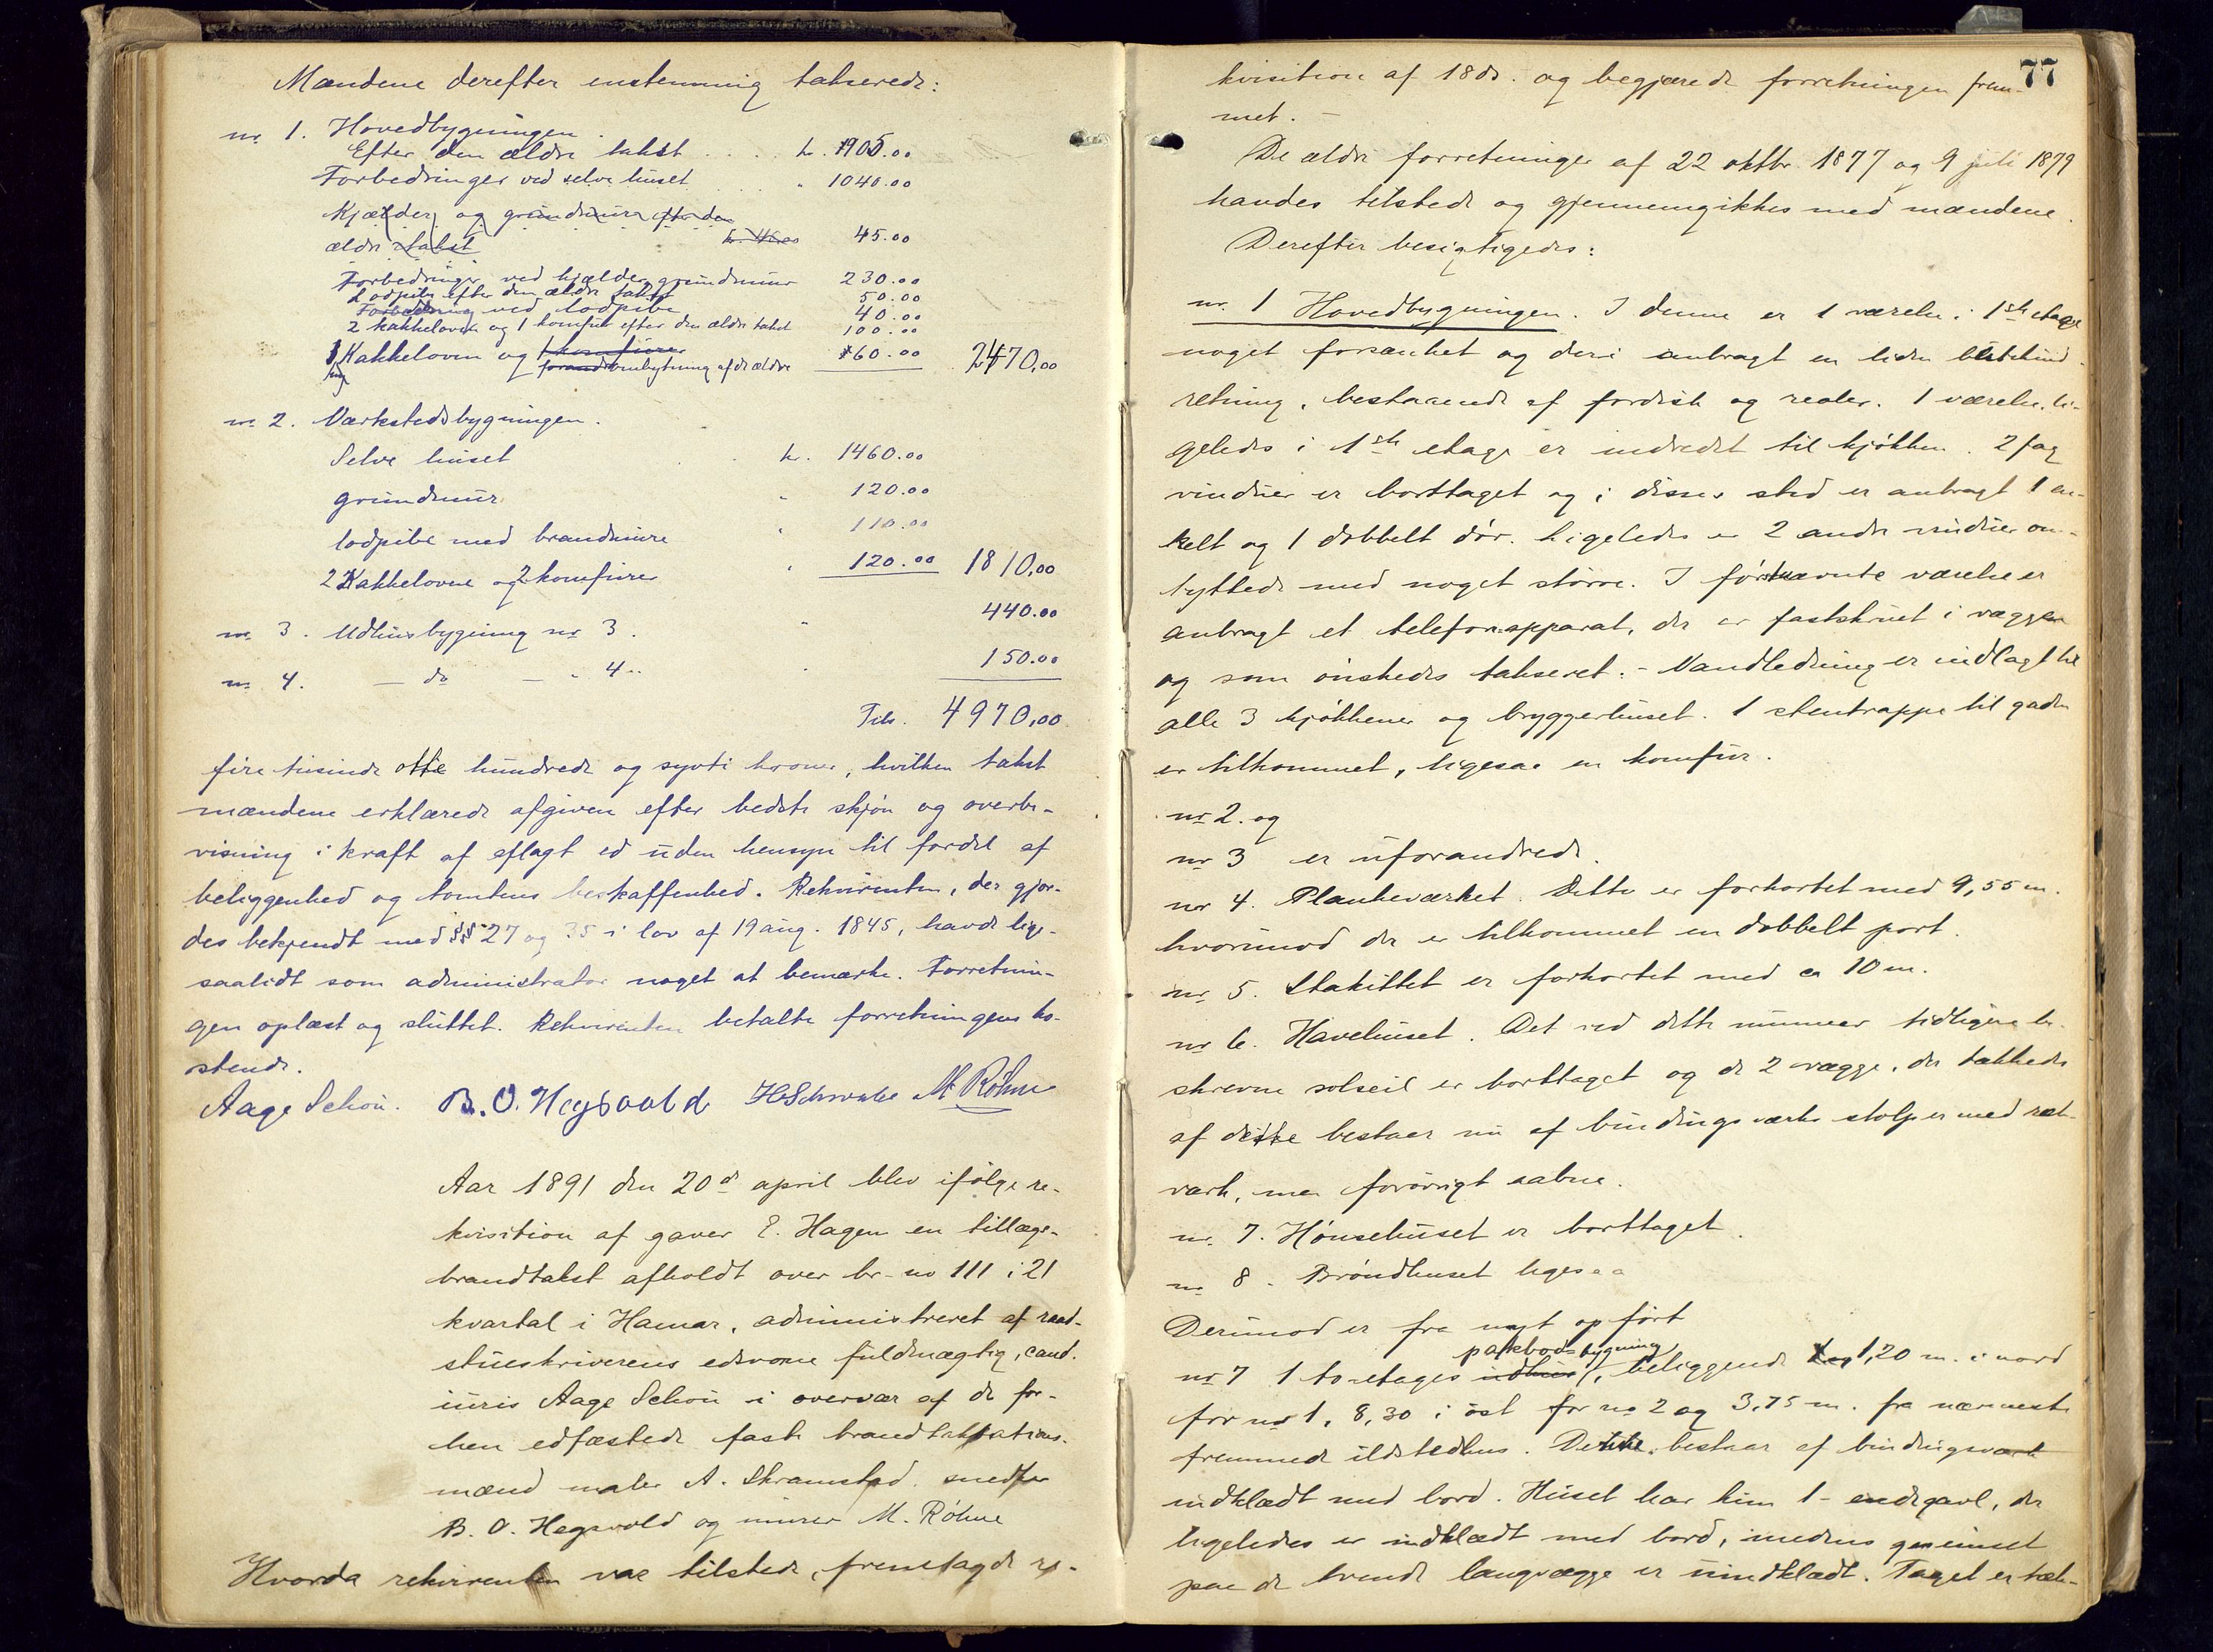 Mændene derefter enstemmig takserede:
nr. 1. Hovedbygningen.
Efter den ældre takst . . . . kr. 905.00
Forbedringer ved selve huset . . . " 1040.00
Kjælder og grundmure efter den
ældre takst 45.00
Forbedringer ved kjælder grundmur 230.00
Lodpibe efter den ældre takst 50.00
Forbedring ved lodpibe 40.00
2 kakkelovne og 1 komfur efter den ældre takst 100.00
1 Kakkelovn og 1 komfure
ombytning af de ældre 60.00 2470,00
nr 2. Værkstedsbygningen.
Selve huset . kr. 1460.00
grundmur " 120.00
lodpibe med brandmure " 110.00
2 Kakkelovne og 2 komfurer " 120.00 1810,00
nr 3. Udhusbygning nr 3. " 440.00
nr 4. — do — " 4.. " 150.00
Tils. 4970,00
fire tusinde otte hundrede og sytti kroner, hvilken takst
mændene erklærede afgiven efter bedste skjøn og overbe-
visning i kraft af aflagt ed uden hensyn til fordel af
beliggenhed og tomtens beskaffenhed. Rekvirenten, der gjor-
des bekjendt med §§ 27 og 35 i lov af 19 aug. 1845, havde lige-
saalidt som administrator noget at bemærke. Forretnin-
gen oplæst og sluttet. Rekvirenten betalte forretningens ko-
stende.
Aage Schou. B. O. Hegsvold H Schwabe M Røhne
Aar 1891 den 20d april blev ifølge re-
kvisition af garver E. Hagen en tillægs-
brandtakst afholdt over br-no 111 i 21
kvartal i Hamar, administreret af raad-
stueskriverens edsvorne fuldmægtig, cand.
iuris Aage Schou i overvær af de for-
hen edfæstede faste brandtaksations-
mænd maler A. Skramstad, snedker
B. O. Hegsvold og murer M. Røhne
Hvorda rekvirenten var tilstede, fremlagde re-
77
kvisition af 18ds. og begjærede forretningen frem-
met. -
De ældre forretninger af 22 oktbr. 1877 og 9 juli 1879
havdes tilstede og gjennemgikkes med mændene.
Derefter besigtigedes:
nr. 1 Hovedbygningen. I denne er 1 værelse i 1ste etage
noget forsænket og deri anbragt en liden butikind-
retning, bestaaende af fordisk og reoler. 1 værelse, li-
geledes i 1ste etage er indredet til kjøkken. 2 fag
vinduer er borttaget og i disses sted er anbragt 1 en-
kelt og 1 dobbelt dør. Ligeledes er 2 andre vinduer om-
byttede med noget større. I førstnævnte værelse er
anbragt et telefonapparat, der er fastskruet i væggen
og som ønskedes takseret. - Vandledning er indlagt til
alle 3 kjøkkener og bryggerhuset. 1 stentrappe til gaden
er tilkommet, ligesaa en komfur.
nr 2. og
nr 3 er uforandrede.
nr 4. Plankeværket. Dette er forkortet med 9,55 m.
hvorimod der er tilkommet en dobbelt port.
nr 5. Stakittet er forkortet med ca 10 m.
nr 6. Havehuset. Det ved dette nummer tidligere be-
skrevne solseil er borttaget og de 2 vægge, der dækkedes
af dette bestaar nu af bindingsværks stolper med ræk-
værk, men forøvrigt aabne.
nr. 7. Hønsehuset er borttaget.
nr 8. Brøndhuset ligesaa
Derimod er fra nyt opført
pakbodbygning
nr 7 1 toetages udhus, beliggende 1,20 m. i nord
for nr 1, 8,30 i øst for no 2 og 3,75 m. fra nærmeste
fremmede ildstedhus. Dette bestaar af bindingsværk
indklædt med bord. Huset har kun 1 - endegavl, der
ligeledes er indklædt med bord, medens
paa de tvende langvægge er uindklædt. Taget er tæk-